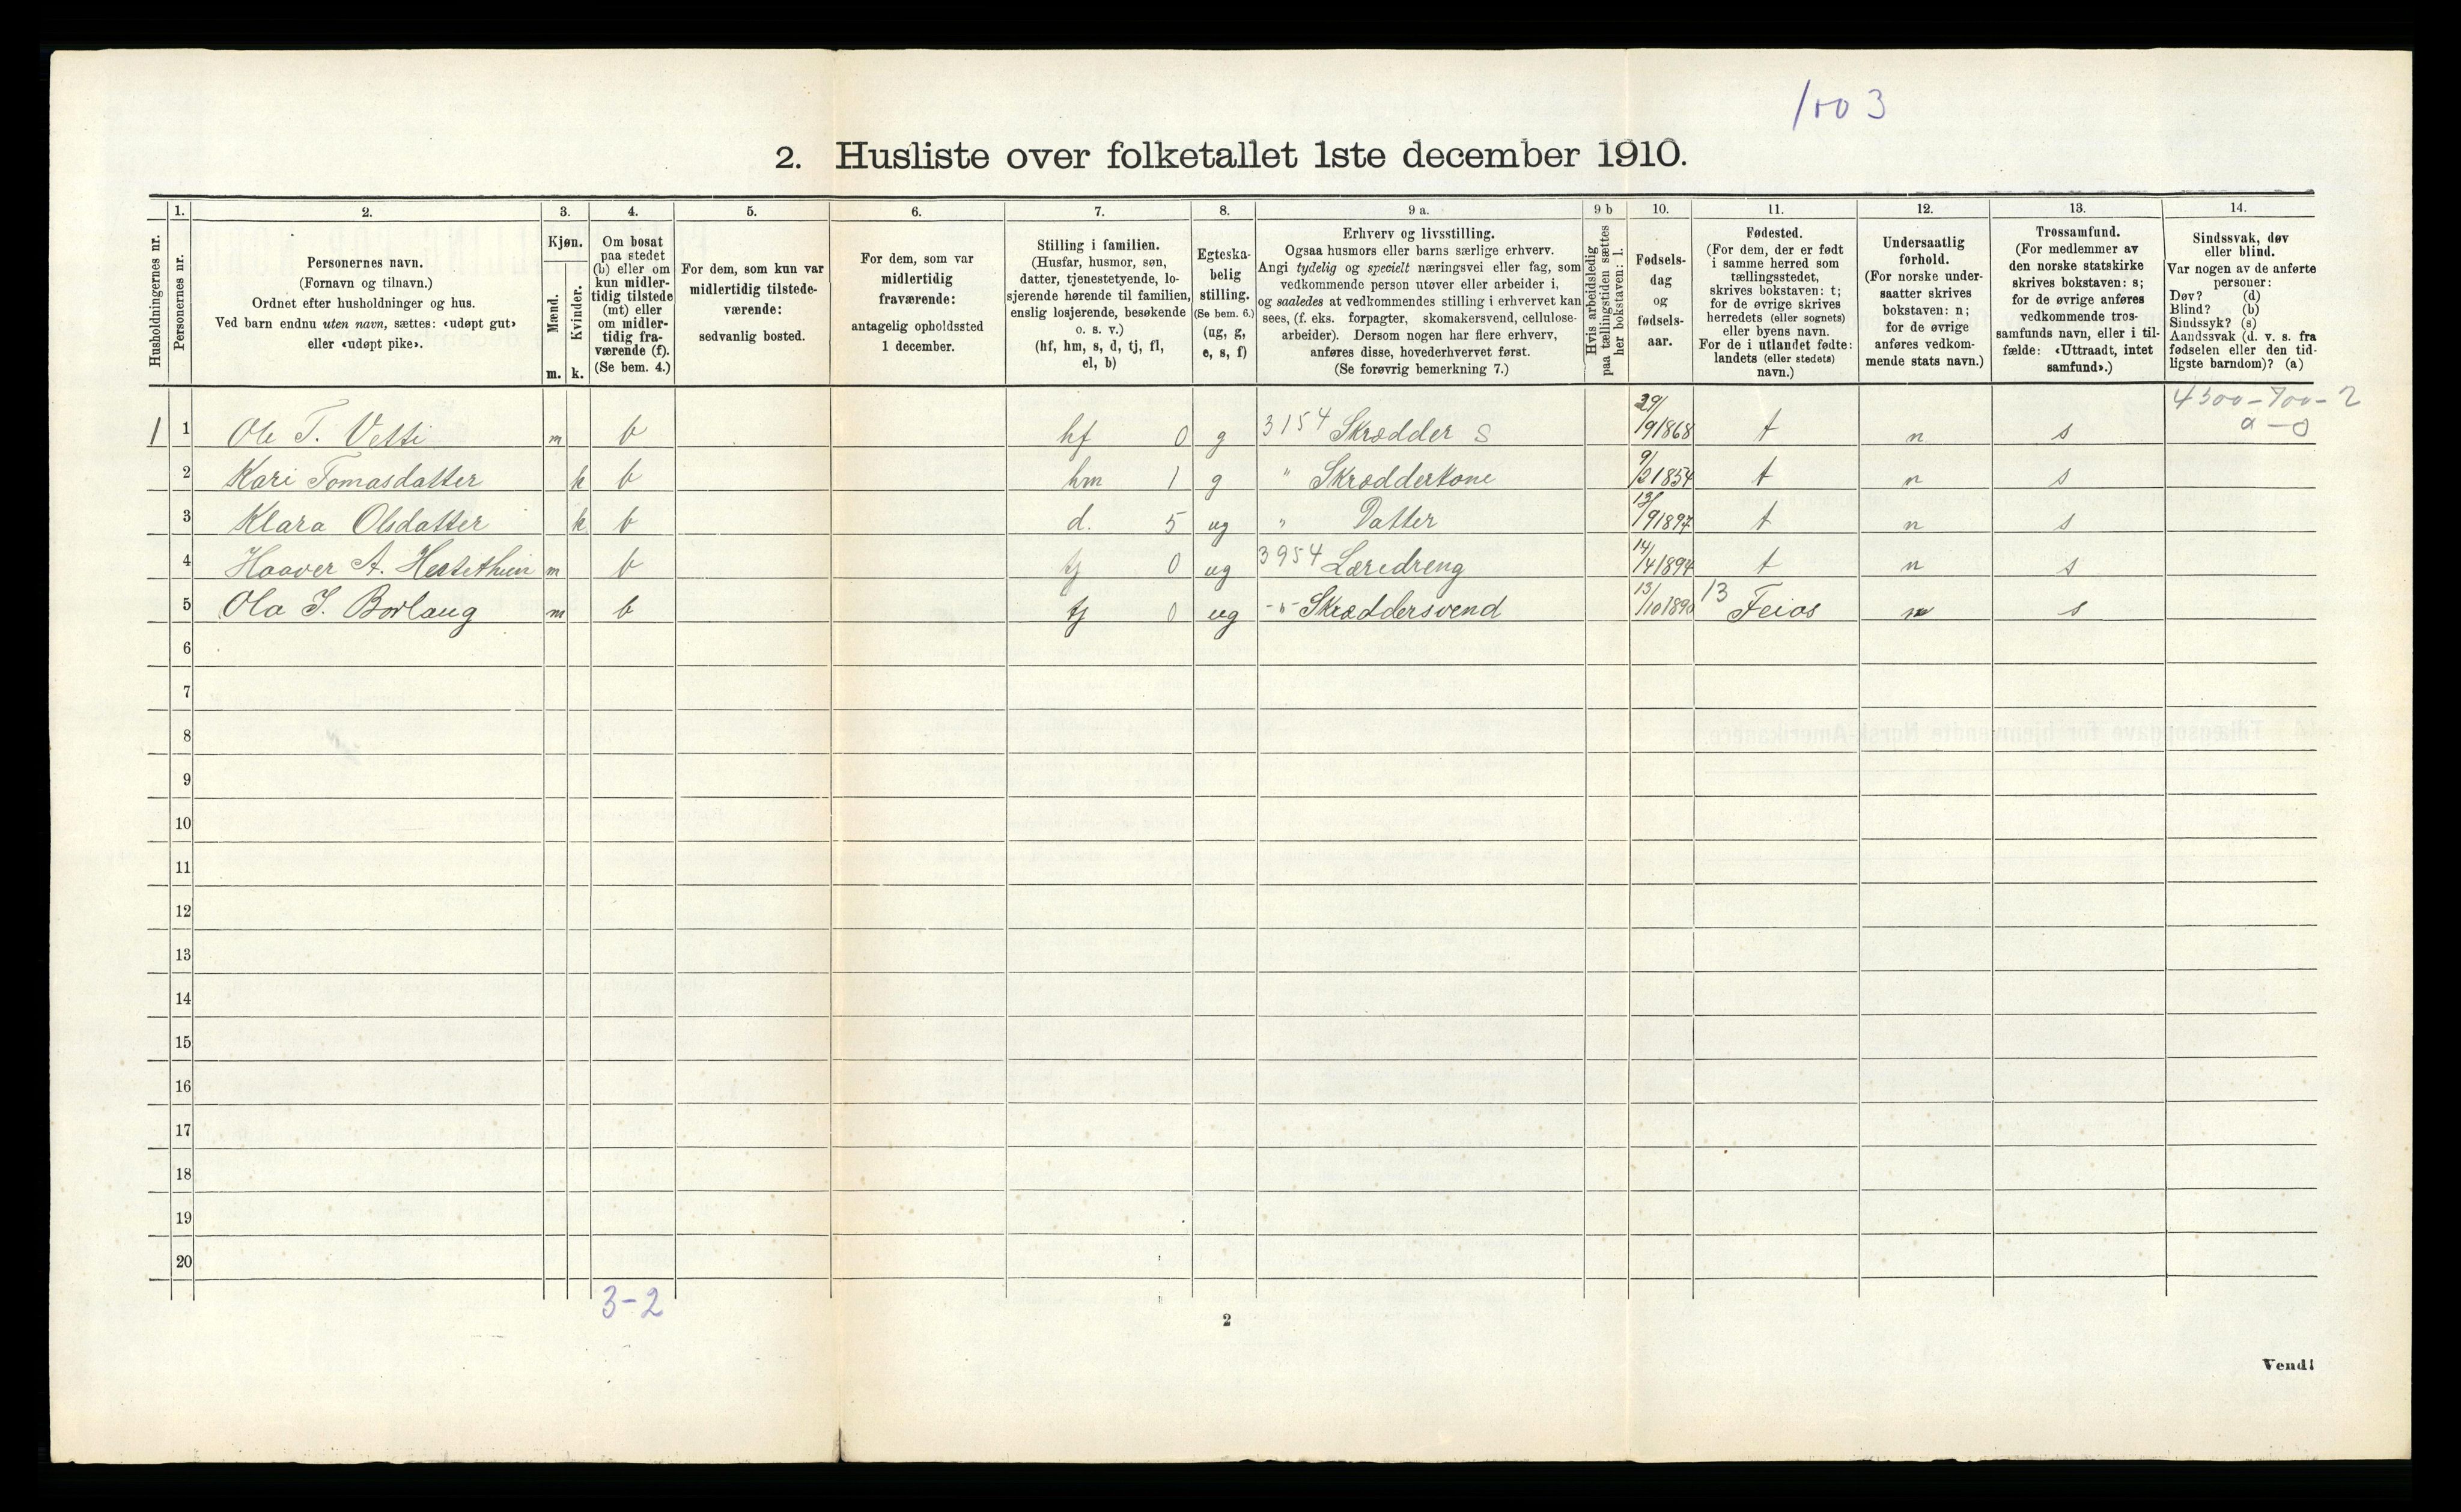 1003
2. Husliste over folketallet 1ste december 1910.
Husholdningernes nr.
1.
Personernes nr.
2.
Personernes navn.
(Fornavn og tilnavn.)
Ordnet efter husholdninger og hus.
Ved barn endnu uten navn, sættes: «udøpt gut»
eller «udøpt pike».
3.
Kjøn.
Mænd.
Kvinder.
m. k.
4.
Om bosat
paa stedet
(b) eller om
kun midler-
tidig tilstede
(mt) eller
om midler-
tidig fra-
værende (f).
(Se bem. 4.)
5.
For dem, som kun var
midlertidig tilstede-
værende:
sedvanlig bosted.
6.
For dem, som var
midlertidig
fraværende:
antagelig opholdssted
1 december.
7.
Stilling i familien.
(Husfar, husmor, søn,
datter, tjenestetyende, lo-
sjerende hørende til familien,
enslig losjerende, besøkende
o. s. v.)
(hf, hm, s, d, tj, fl,
el, b)
8.
Egteska-
belig
stilling.
(Se bem. 6.)
(ug, g,
e, s, f)
9 a.
Erhverv og livsstilling.
Ogsaa husmors eller barns særlige erhverv.
Angi tydelig og specielt næringsvei eller fag, som
vedkommende person utøver eller arbeider i,
og saaledes at vedkommendes stilling i erhvervet kan
sees, (f. eks. forpagter, skomakersvend, cellulose-
arbeider). Dersom nogen har flere erhverv,
anføres disse, hovederhvervet først.
(Se forøvrig bemerkning 7.)
9 b
Hvis arbeidsledig
paa tællingstiden sættes
her bokstaven: l.
10.
Fødsels-
dag
og
fødsels-
aar.
11.
Fødested.
(For dem, der er født
i samme herred som
tællingsstedet,
skrives bokstaven: t;
for de øvrige skrives
herredets (eller sognets)
eller byens navn.
For de i utlandet fødte:
landets (eller stedets)
navn.)
12.
Undersaatlig
forhold.
(For norske under-
saatter skrives
bokstaven: n;
for de øvrige
anføres vedkom-
mende stats navn.)
13.
Trossamfund.
(For medlemmer av
den norske statskirke
skrives bokstaven: s;
for de øvrige anføres
vedkommende tros-
samfunds navn, eller i til-
fælde: «Uttraadt, intet
samfund».)
14.
Sindssvak, døv
eller blind.
Var nogen av de anførte
personer:
Døv? (d)
Blind? (b)
Sindssyk? (s)
Aandssvak (d. v. s. fra
fødselen eller den tid-
ligste barndom)? (a)
4300-700-2
a-0
1 1 Ole T. Vetti m b hf 0 g 3154 Skrædder S 29/9 1868 t n s
2 Kari Tomasdatter k b hm 1 g " Skrædderkone 9/2 1854 t n s
3 Klara Olsdatter k b d. 5 ug " Datter 13/9 1897 t n s
4 Haaver A. Hestethun m b tj 0 ug 3954 Læredreng 14/4 1894 t n s
5 Ola I. Borlaug m b tj 0 ug -"- Skræddersvend 13/10 1890 13 Feios n s
6
7
8
9
10
11
12
13
14
15
16
17
18
19
20
3-2
2
Vend!